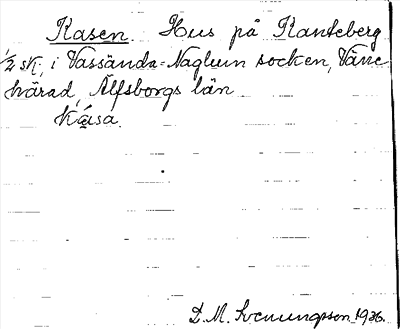 Kasen. Hus på Ranteberg
1/2 sk, i Vassända-Naglum socken, Väne
härad, Älfsborgs län
kása.
D. M. Svenungsson 1936.